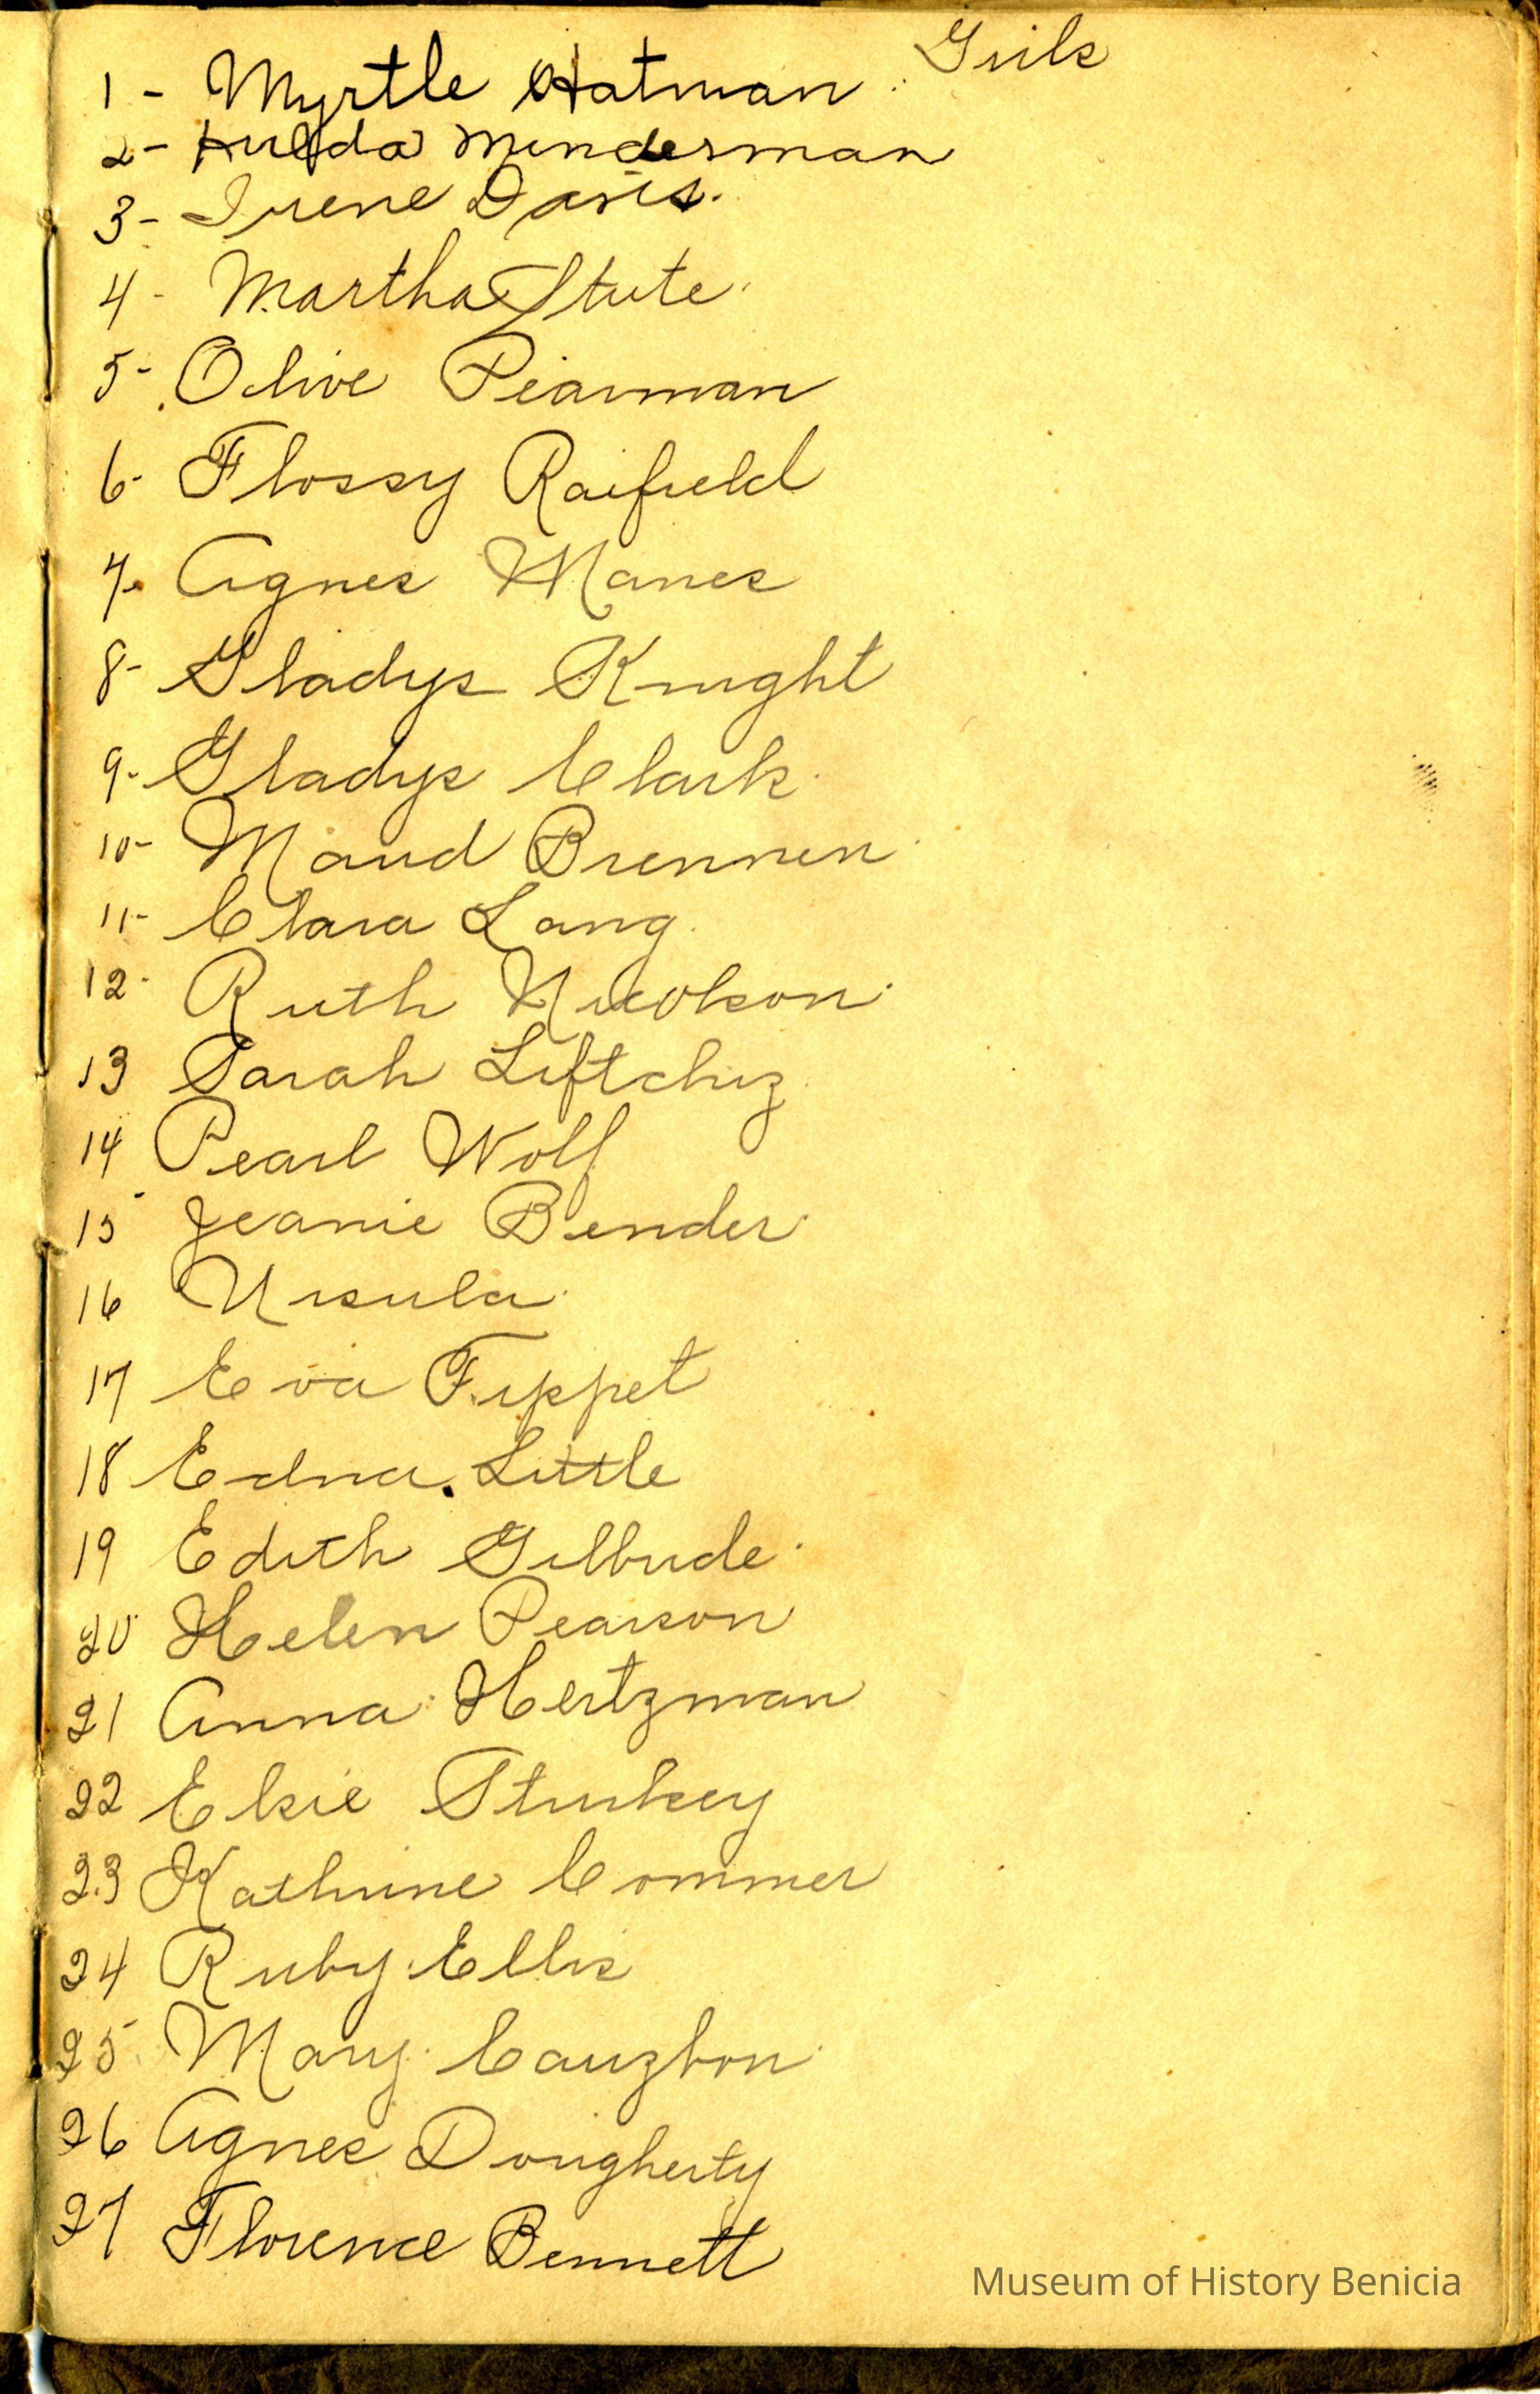 Girls
1 - Myrtle Hatman
2 - Hulda Menderman
3 - Irene Davis.
4 - Martha Stute
5 - Olive Pearman
6 - Flossy Raifield
7. Agnes Manes
8 - Gladys Knight
9 - Gladys Clark
10 - Maud Brennen
11 - Clara Lang
12 - Ruth Nicolson
13 Sarah Liftchiz
14 Pearl Wolf
15 Jeanie Bender
16 Ursula
17 Eva Tippet
18 Edna Little
19 Edith Gilbride
20 Helen Pearson
21 Anna Hertzman
22 Elsie Sturkey
23 Kathrine Commer
24 Ruby Ellis
25 Mary Cauzbon
26 Agnes Dougherty
27 Florence Bennett
Museum of History Benicia